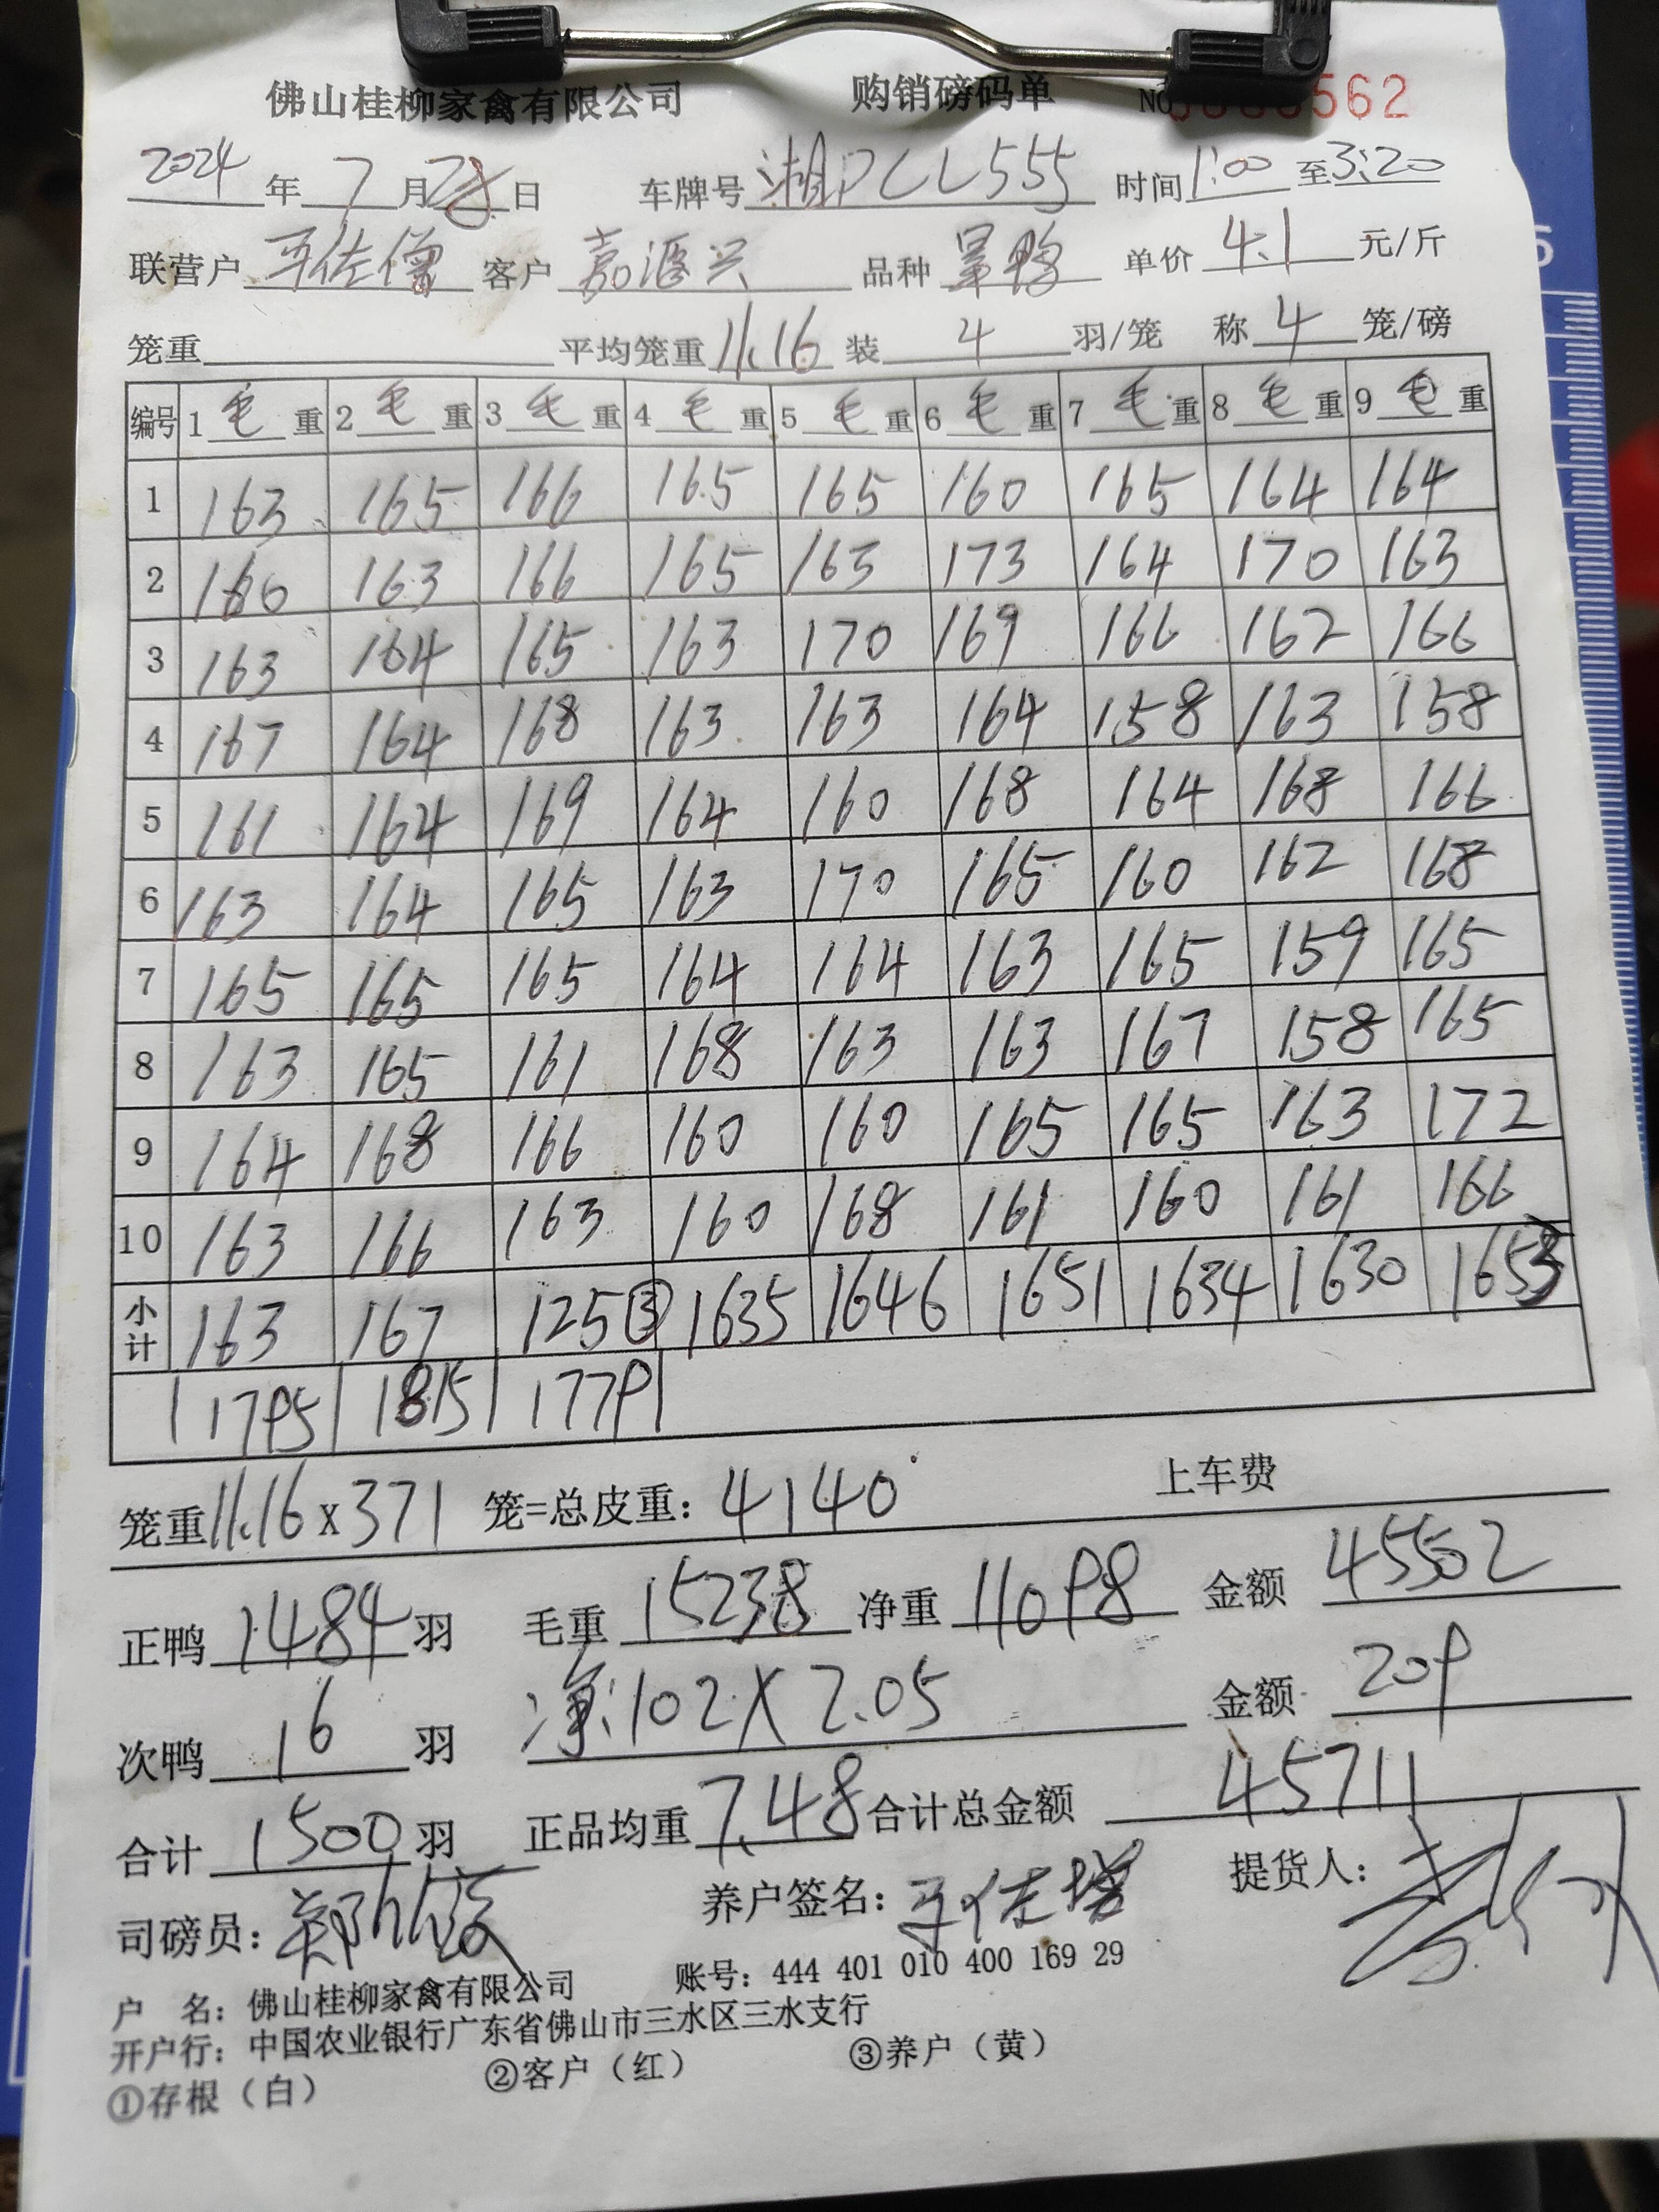 佛山桂柳家禽有限公司 购销磅码单 NO 562
2024 年 7 月 28 日 车牌号 湘 CL555 时间 1:00 至 3:20
联营户 客户 嘉源兴 品种 单价 4.1 元/斤
笼重 平均笼重 11.16 装 4 羽/笼 称 4 笼/磅
编号 1 毛 重 2 毛 重 3 毛 重 4 毛 重 5 毛 重 6 毛 重 7 毛 重 8 毛 重 9 毛 重
1 163 165 166 165 165 160 165 164 164
2 160 163 166 165 163 173 164 170 163
3 163 164 165 163 170 169 166 162 166
4 167 164 168 163 163 164 158 163 158
5 161 164 169 164 160 168 164 168 166
6 163 164 165 163 170 165 160 162 168
7 165 165 165 164 164 163 165 159 165
8 163 165 161 168 163 163 167 158 165
9 164 168 166 160 160 165 165 163 172
10 163 166 163 160 168 161 160 161 166
小计 163 167 125③ 1635 1646 1651 1634 1630 1653
1795 1815 1779
上车费
笼重 11.16 x 371 笼=总皮重: 4140
正鸭 1484 羽 毛重 15238 净重 11098 金额 45502
次鸭 16 羽 净:102X2.05 金额 209
合计 1500 羽 正品均重 7.48 合计总金额 45711
司磅员: 养户签名: 提货人:
户 名: 佛山桂柳家禽有限公司 账号: 444 401 010 400 169 29
开户行: 中国农业银行广东省佛山市三水区三水支行
①存根(白) ②客户(红) ③养户(黄)